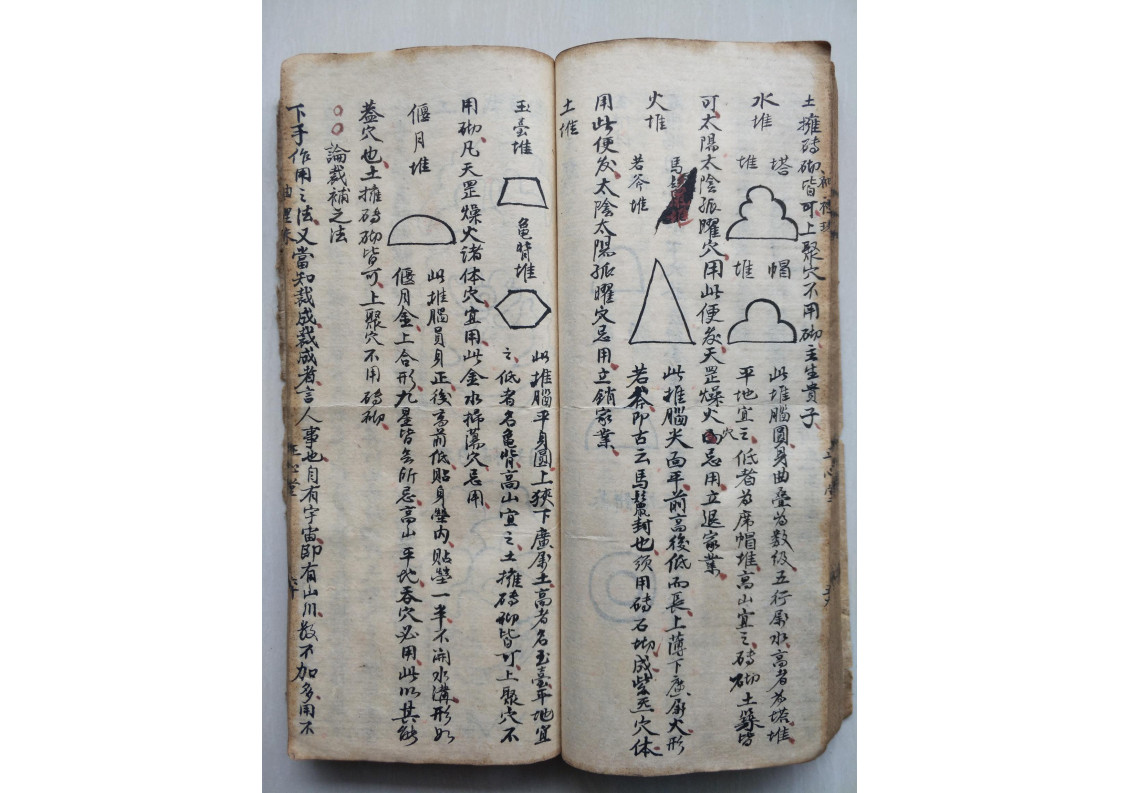 土擁磚砌皆可上聚穴不用砌主生貴子
水堆
塔堆
帽堆
此堆腦圓身曲叠為数级五行屬水高者為塔堆
平地宜之低者為席帽堆高山宜之磚砌土築皆
可太陽太陰孤曜穴用此便發天罡燥火穴忌用立退家業
火堆
馬
若斧堆
此堆腦尖面平前高後低而長上薄下廣屬火形
若斧即古云馬鬣封也須用磚石坳成紫炁穴体
用此便发太陰太陽孤曜穴忌用立銷家業
土堆
玉臺堆
龜背堆
此堆腦平身圓上狹下廣屬土高者名玉臺平地宜
之低者名龜背高山宜之土擁磚砌皆可上聚穴不
用砌凡天罡燥火诸体穴宜用此金水掃蕩穴忌用
偃月堆
此堆腦員身正後高前低贴身塋内贴塋一半不開水溝形如
偃月金上合形九星皆無所忌高山平地吞穴必用此以其能
蓋穴也土擁磚砌皆可上聚穴不用磚砌
論裁補之法
下手作用之法又當知裁成裁成者言人事也自有宇宙即有山川数不加多用不